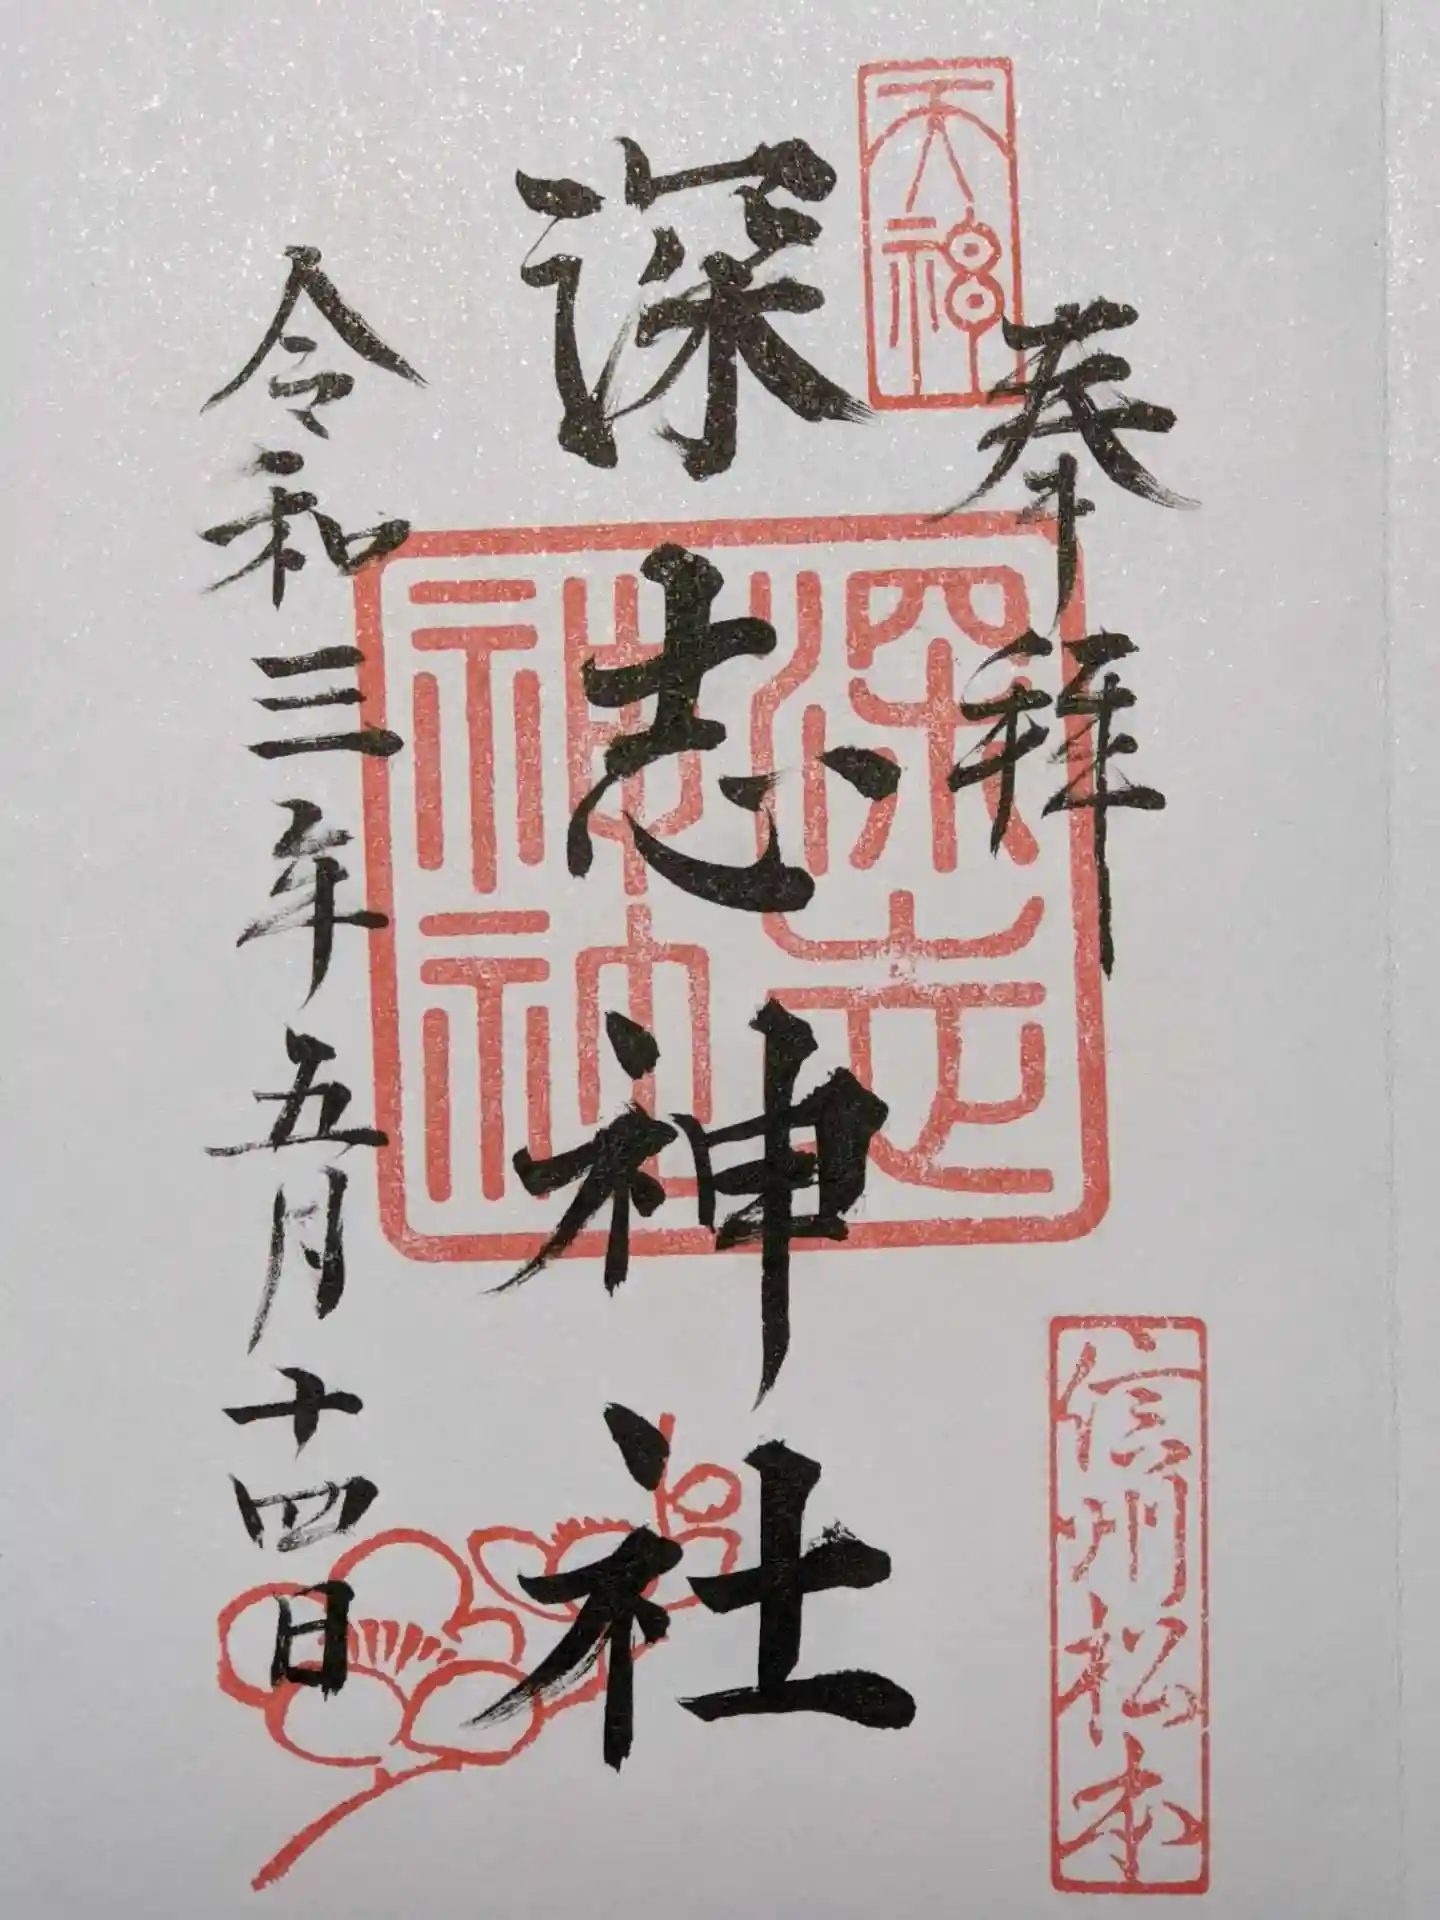 天神
奉拝
信州松本
深志神社
深志
神神
令和三年五月十四日